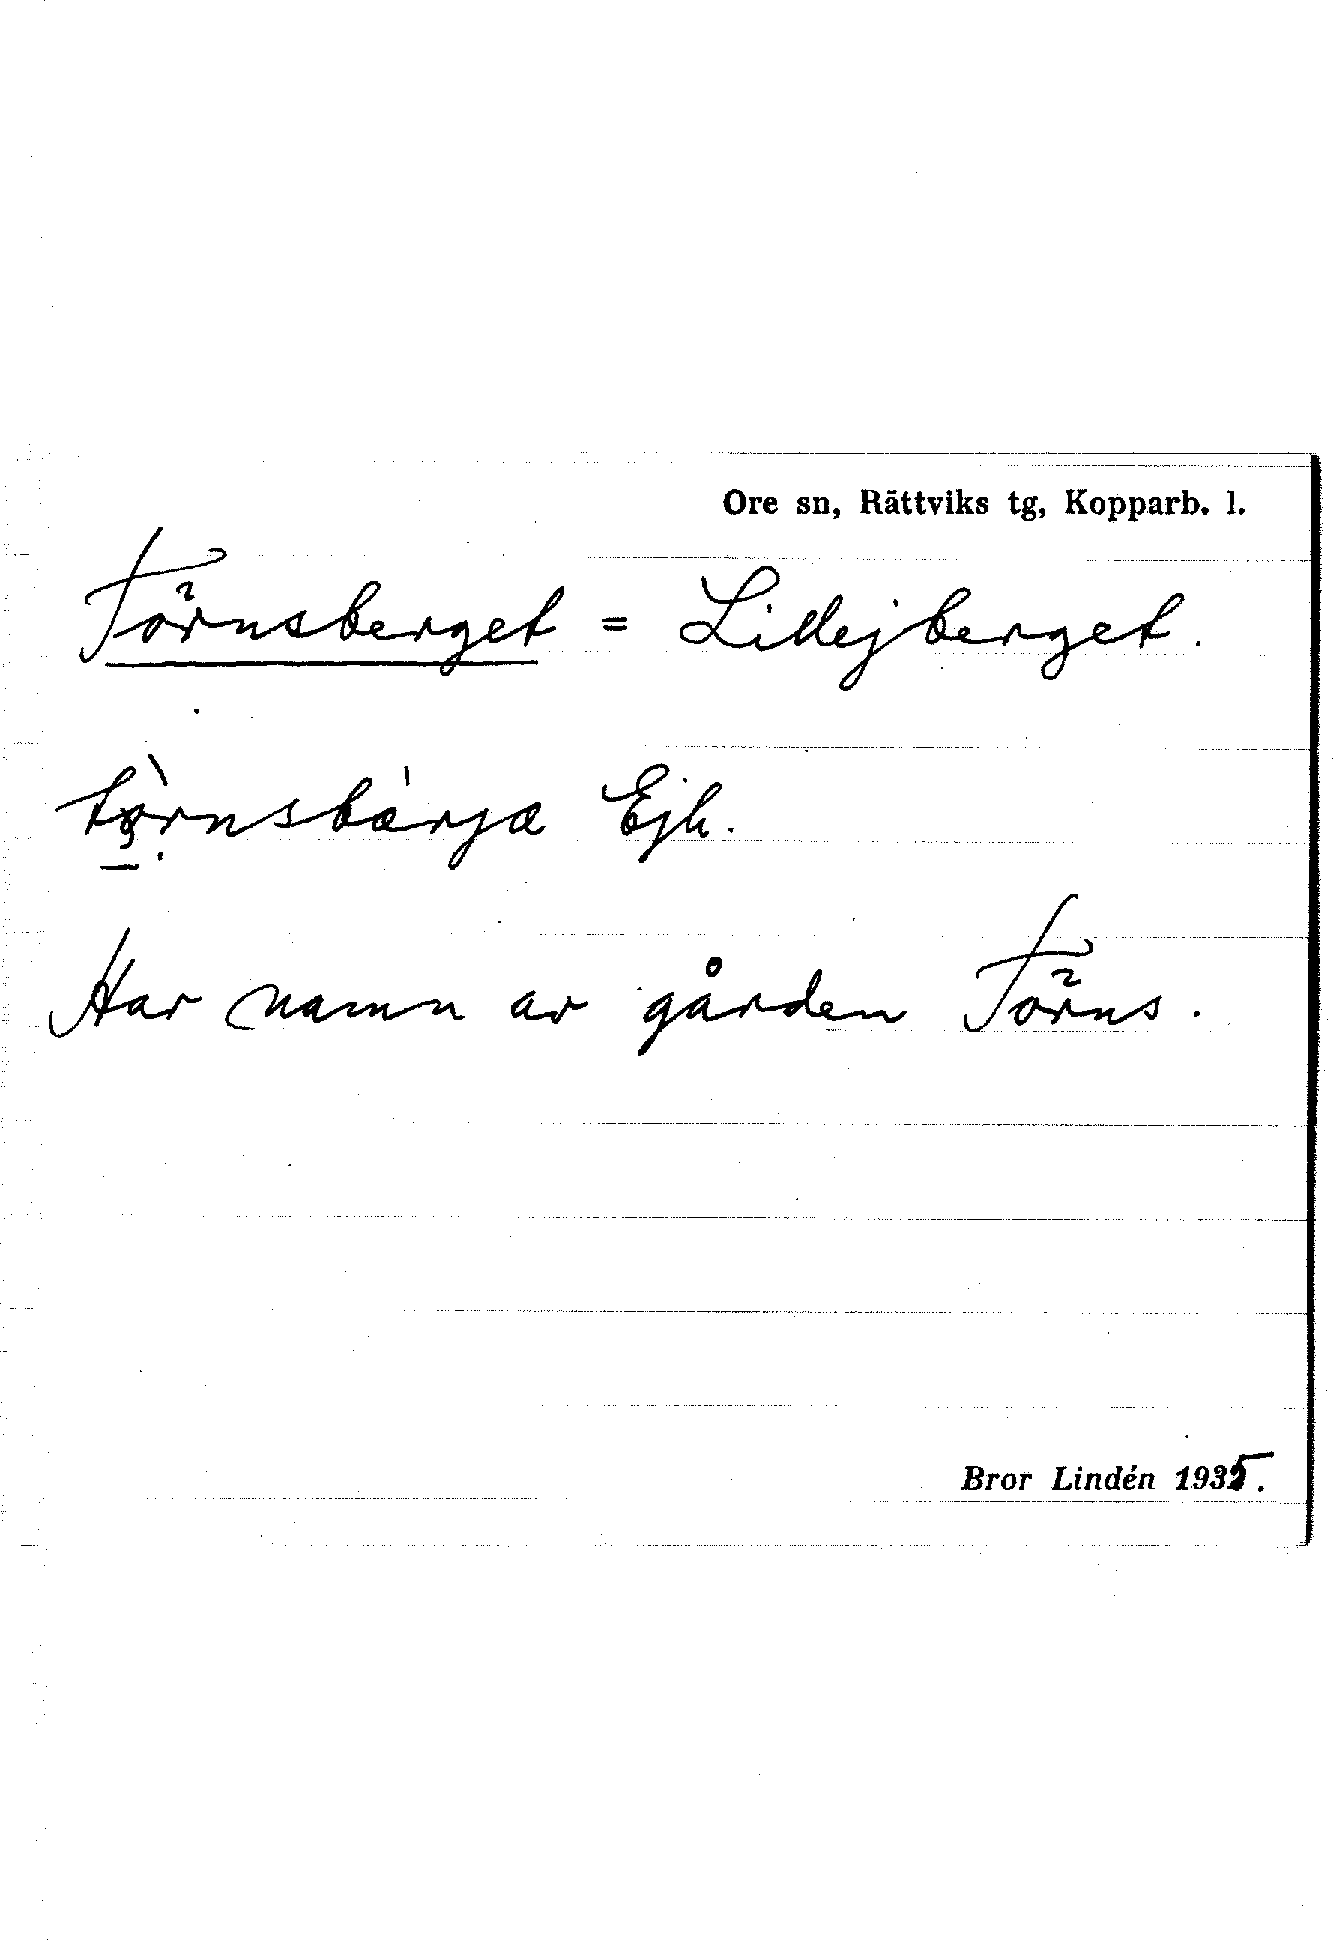 Ore sn, Rättviks tg, Kopparb. l.
Törnsberget = Lillejberget.
tò̤rnsbärja Ejh.
Har namn av gården Törns.
Bror Lindén 1935.